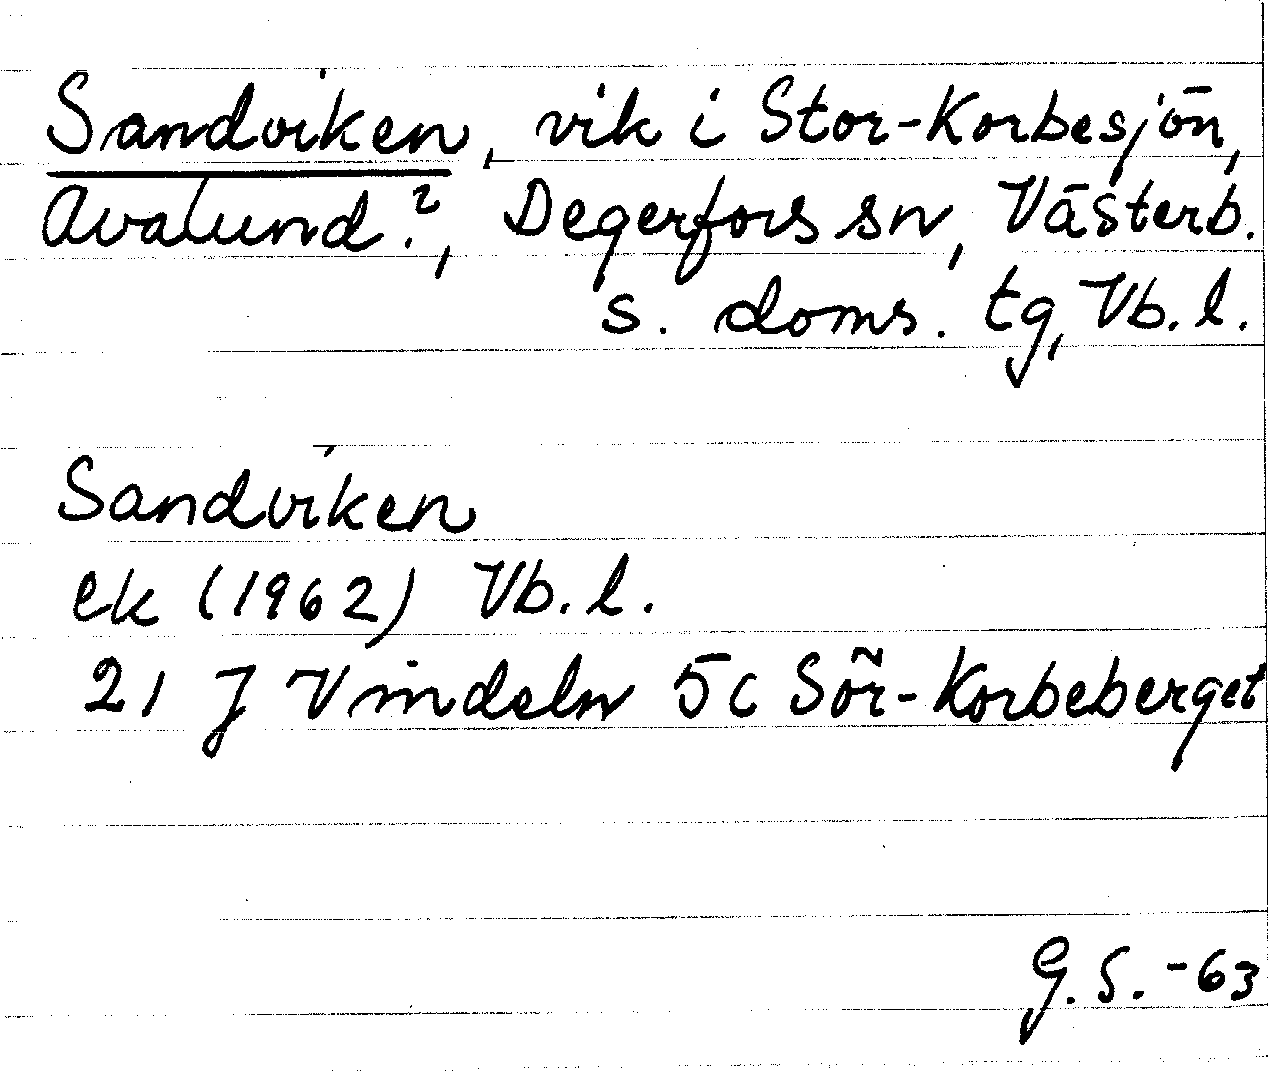 Sandviken, vik i Stor-Korbesjön,
Avalund?, Degerfors sn, Västerb.
s. doms. tg, Vb. l.
Sandviken
ek (1962) Vb. l.
21 J Vindeln 5c Sör-Korbeberget
G. S. -63